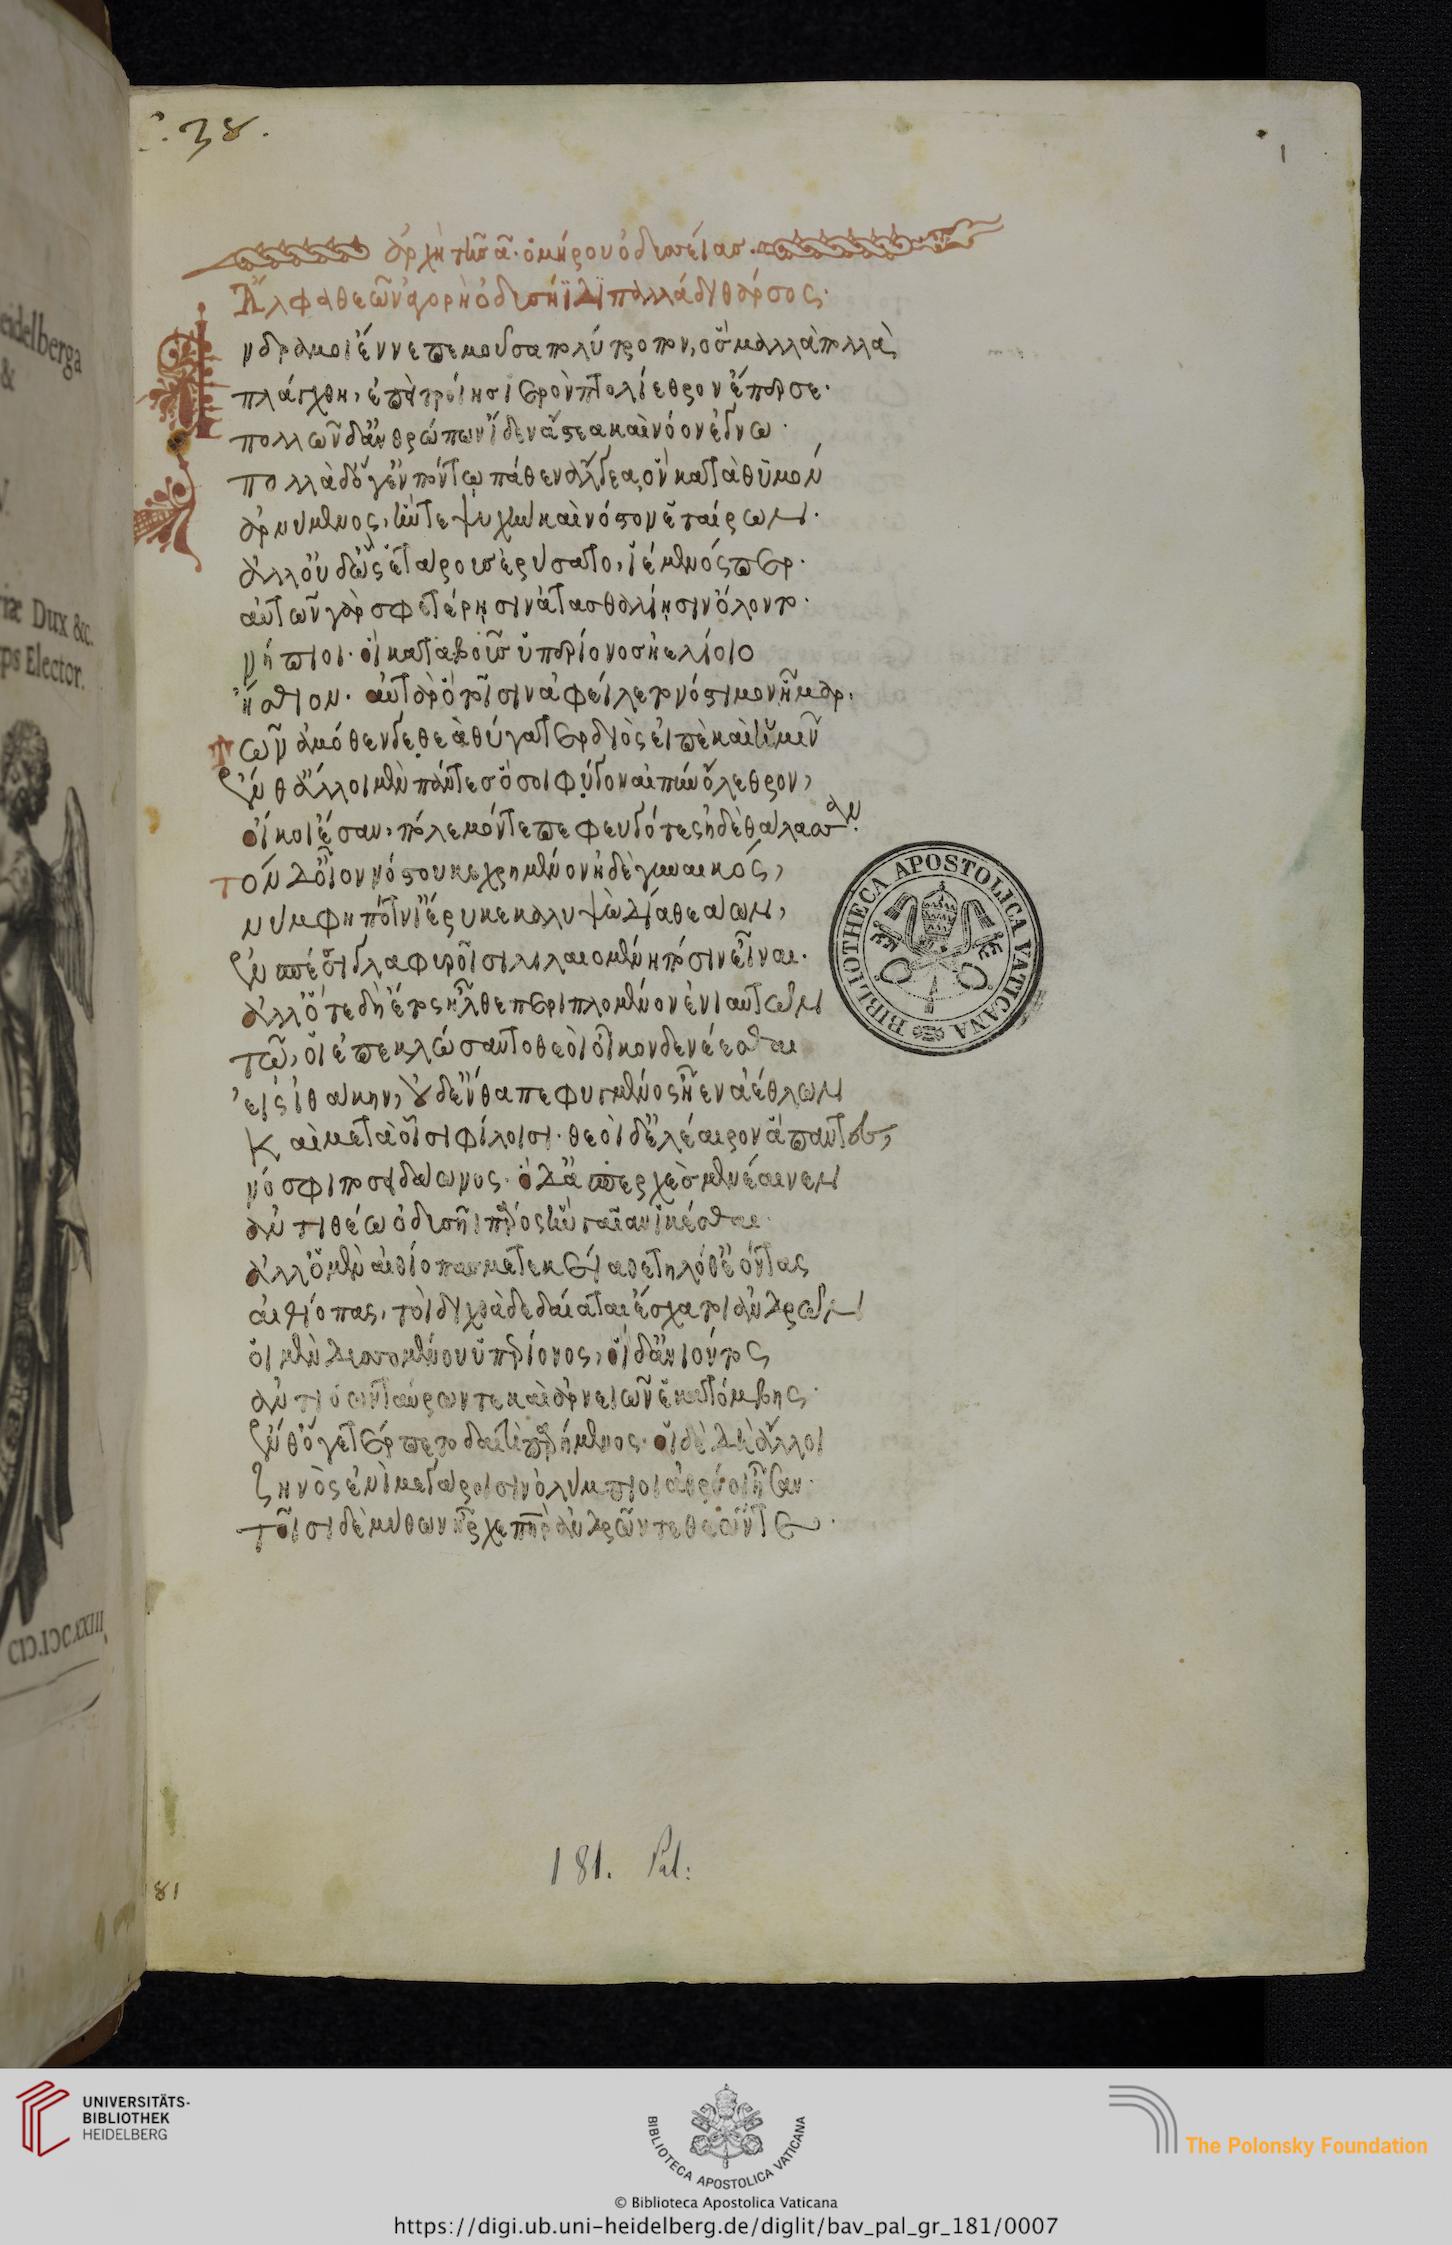 C. 38.
1
ἀρχὴ τῆς α· ὁμήρου ὀδυσσείας·
Ἄλφα θεῶν ἀγορὴ ὀδυσηΐδι παλλάδι θάρσος·
νδρα μοι ἔννεπε μοῦσα πολύτροπον, ὃς μάλλα πολλὰ
πλάγχθη, ἐπεὶ τροίης ἱερὸν πτολίεθρον ἔπερσε·
πολλῶν δ' ἀνθρώπων ἴδεν ἄστεα καὶ νόον ἔγνω·
πολλὰ δ' ὅγ' ἐν πόντῳ πάθεν ἄλγεα ὃν κατὰ θῦμον
ἀρνύμενος, ἥν τε ψυχὴν καὶ νόστον ἑταίρων·
ἀλλ' οὐδ' ὧς ἑτάρους ἐρύσατο, ἱέμενός περ·
αὐτῶν γὰρ σφετέρῃσιν ἀτασθαλίῃσιν ὄλοντο·
νήπιοι· οἳ κατα βοῦς ὑπερίονος ἠελίοιο
ἤσθιον· αὐτὰρ ὁ τοῖσιν ἀφείλετο νόστιμον ἦμαρ·
τῶν ἁμόθεν γε θεὰ θύγατερ διὸς εἰπὲ καὶ ἡμῖν
ἔνθ' ἄλλοι μὲν πάντες ὅσοι φύγον αἰπὺν ὄλεθρον,
οἴκοι ἔσαν, πόλεμόν τε πεφευγότες ἠδὲ θάλασσαν·
τὸν δ' οἶον νόστου κεχρημένον ἠδὲ γυναικός,
νύμφη πότνι' ἔρυκε καλυψὼ δῖα θεάων,
ἐν σπέσσι γλαφυροῖσι λιλαιομένη πόσιν εἶναι·
ἀλλ' ὅτε δὴ ἔτος ἦλθε περιπλομένον ἐνιαυτῶν
τῶ, οἱ ἐπεκλώσαντο θεοὶ οἶκον δε νέεσθαι
εἰς ἰθάκην, οὐδ' ἔνθα πεφυγμένος ἦεν ἀέθλων
Καὶ μετὰ οἷσι φίλοισι· θεοὶ δ' ἐλέαιρον ἅπαντες,
νόσφι ποσειδάωνος· ὁ δ' ἀσπερχὲς μενέαινεν
ἀντιθέω ὀδυσῆι πάρος ἣν γαῖαν ἱκέσθαι·
ἀλλ' ὁ μὲν αἰθίοπας μετεκείαθε τηλόθ' ἐόντας
αἰθίοπας, τοὶ διχθὰ δεδαίαται ἔσχατοι ἀνδρῶν
οἱ μὲν δυσομένου ὑπερίονος, οἱ δ' ἀνιόντος
ἀντιόων ταύρων τε καὶ ἀρνειῶν ἑκατόμβης·
ἔνθ' ὅγε τέρπετο δαιτὶ παρήμενος· οἱ δὲ δὴ ἄλλοι
ζηνὸς ἐνὶ μεγάροισιν ὀλυμπίου ἀθρόοι ἦσαν·
τοῖσι δὲ μύθων ἦρχε πατὴρ ἀνδρῶν τε θεῶν τε·
BIBLIOTHECA APOSTOLICA VATICANA
181. Pal:
181
eidelberga
&
riæ Dux &c.
ps Elector.
CIↃ.IↃCXXIII
UNIVERSITÄTS-
BIBLIOTHEK
HEIDELBERG
BIBLIOTECA APOSTOLICA VATICANA
© Biblioteca Apostolica Vaticana
The Polonsky Foundation
https://digi.ub.uni-heidelberg.de/diglit/bav_pal_gr_181/0007